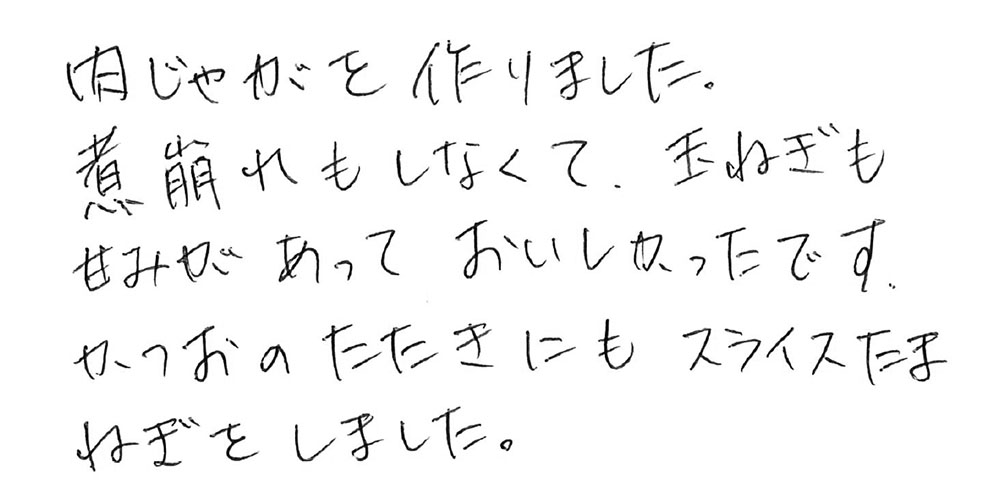 肉じゃがを作りました。
煮崩れもしなくて、玉ねぎも
甘みがあっておいしかったです。
かつおのたたきにもスライスたま
ねぎをしました。